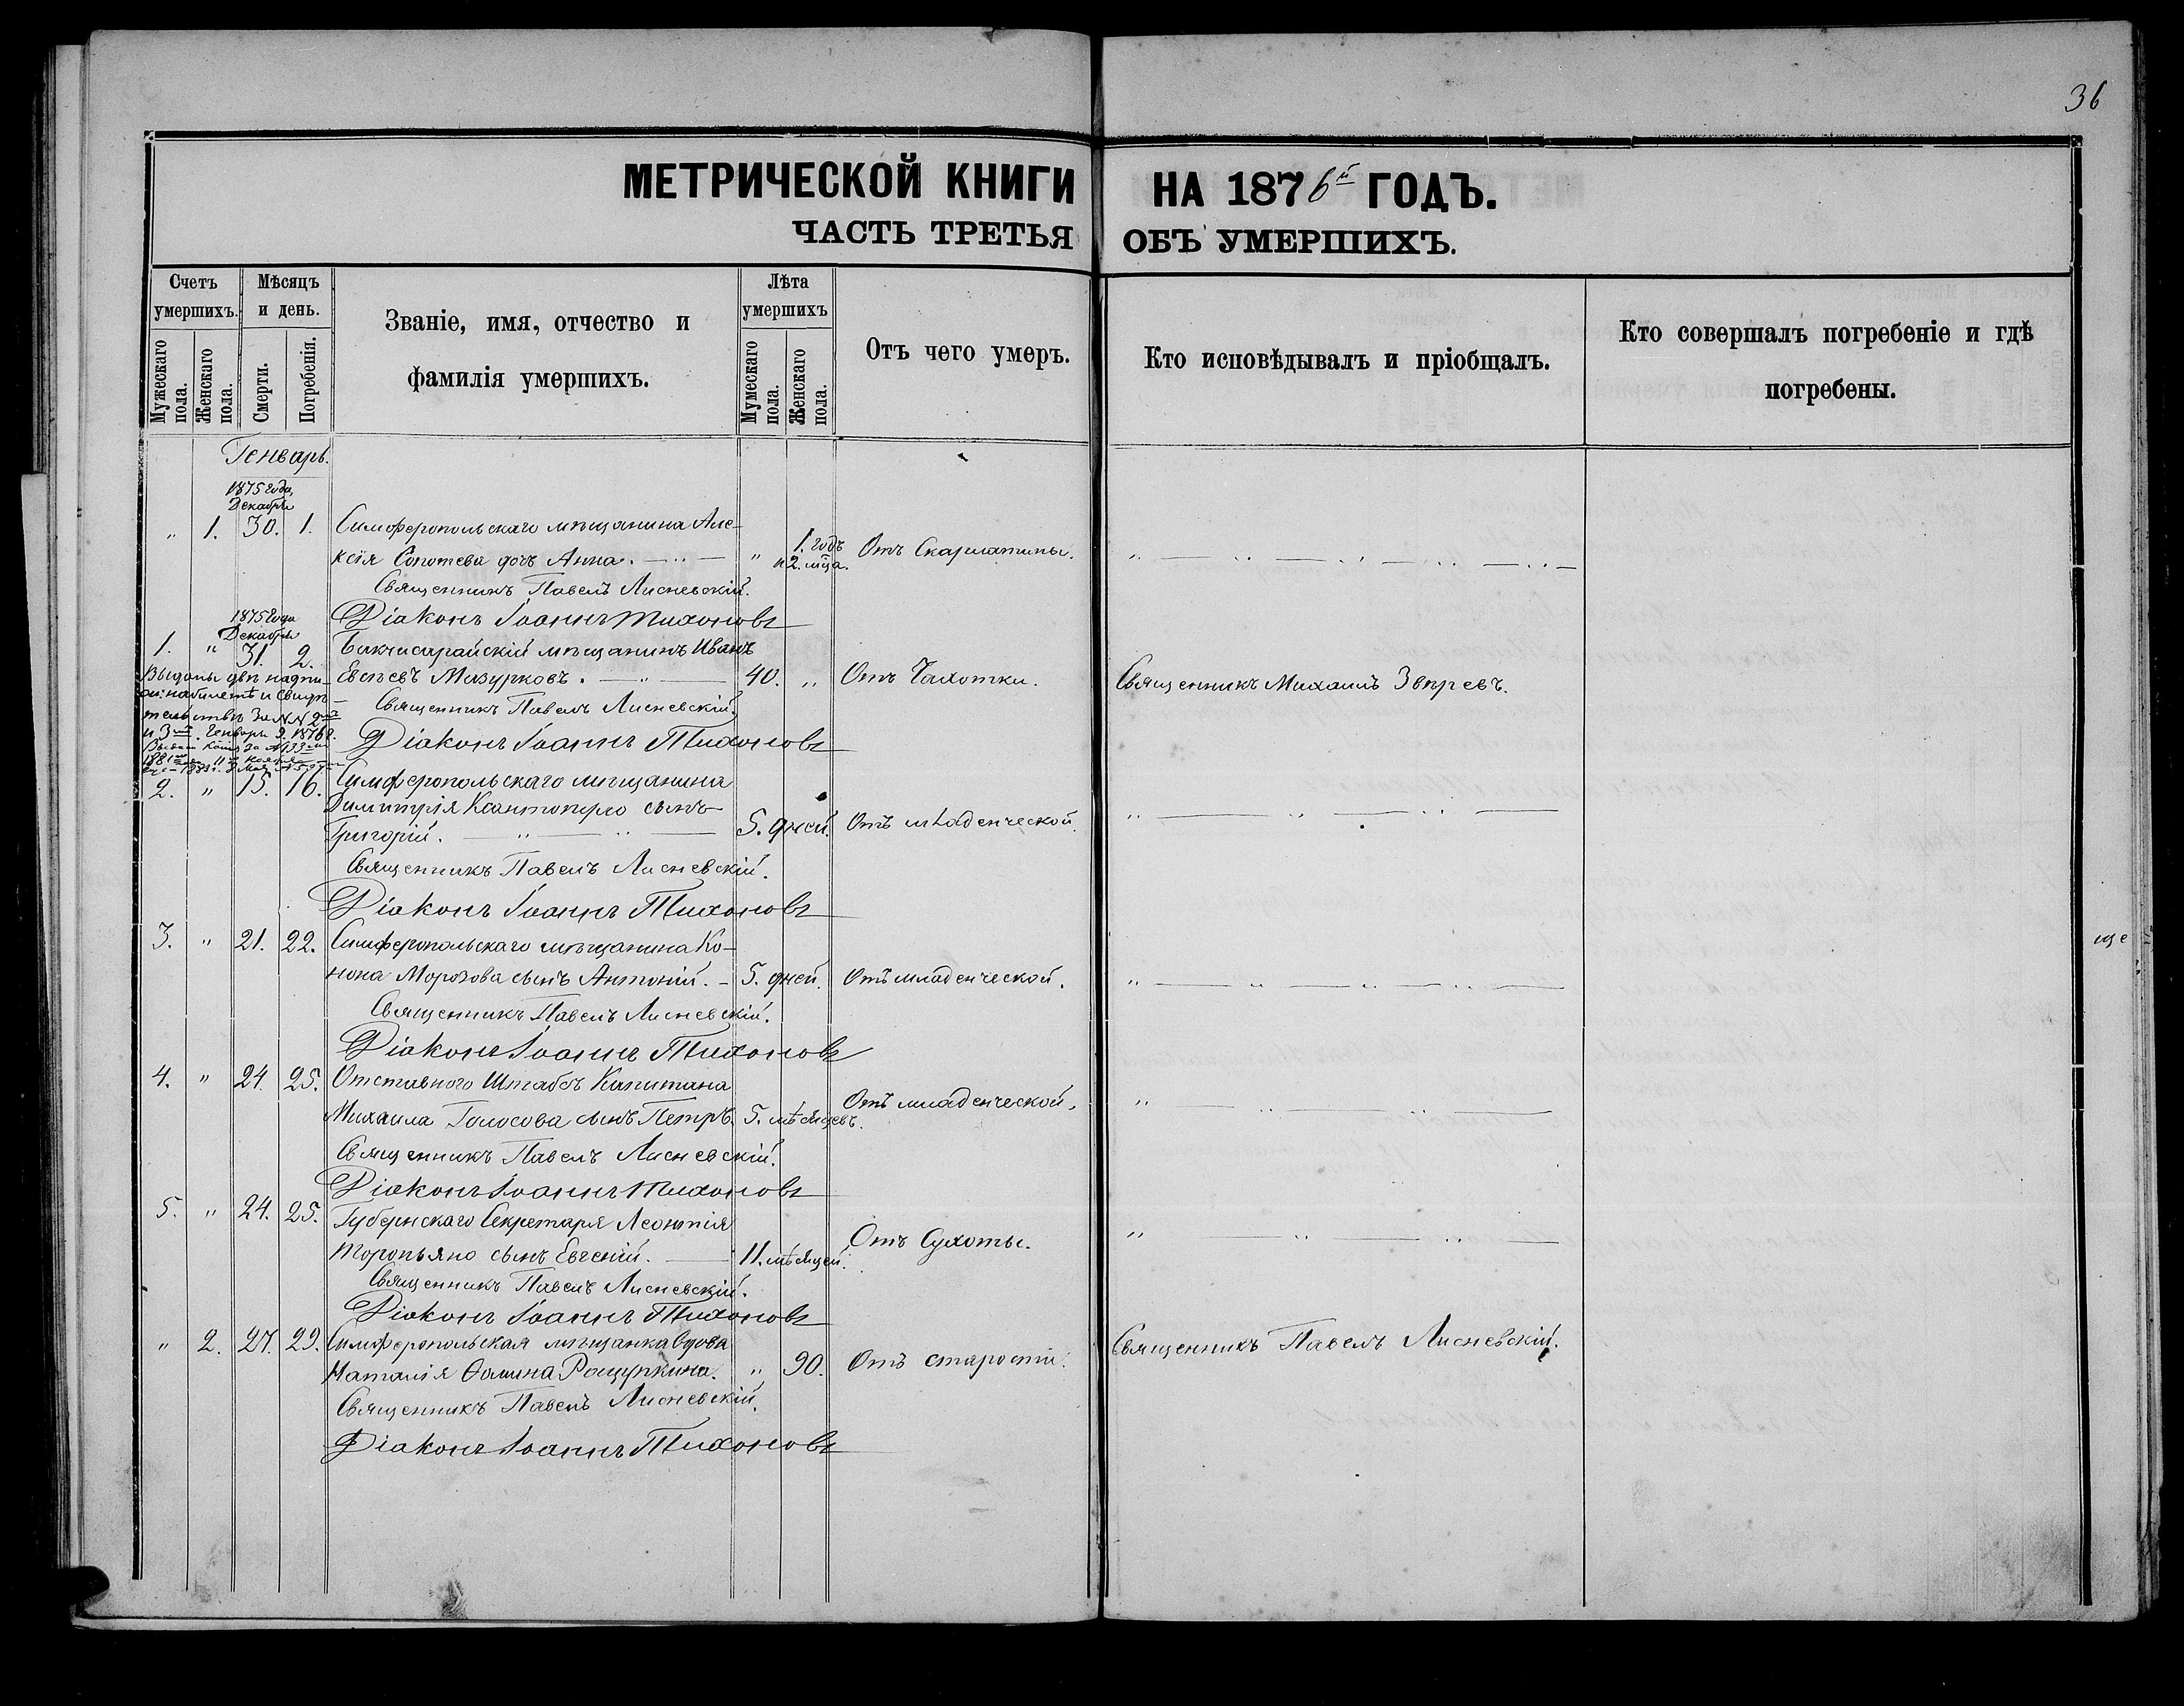 36
МЕТРИЧЕСКОЙ КНИГИ НА 1876й ГОДЪ.
ЧАСТЬ ТРЕТЬЯ ОБЪ УМЕРШИХЪ.
Счетъ умершихъ.
Мужескаго пола.
Женскаго пола.
Мѣсяцъ и день.
Смерти.
Погребенія.
Званіе, имя, отчество и
фамилія умершихъ.
Лѣта умершихъ
Мумескаго пола.
Женскаго пола.
Отъ чего умеръ.
Кто исповѣдывалъ и пріобщалъ.
Кто совершалъ погребеніе и гдѣ
погребены.
Генварь.
1875 года
Декабря
" 1. 30. 1. Симферопольскаго мѣщанина Але-
ксія дочь Анна. " 1. годъ и 2. мца. Отъ Скарлатины.
Священникъ Павелъ Лисневскій.
Діаконъ Іоаннъ Тихоновъ
1875 года
Декабря
1. " 31. 2. Бакчисарайскій мѣщанинъ Иванъ
Евсѣевъ Мазурковъ. 40. " Отъ Чахотки. Священникъ Михаилъ Звѣревъ.
Выданы двѣ надпи-
си: на билетѣ и свидѣ-
тельствѣ За NN 2мъ
и 3мъ. Генваря 9. 1876 г.
Священникъ Павелъ Лисневскій.
Діаконъ Іоаннъ Тихоновъ
2. " 15. 16. Симферопольскаго мѣщанина
Димитрія Ксантопуло сынъ
Григорій. 5. дней. Отъ младенческой.
Священникъ Павелъ Лисневскій.
Діаконъ Іоаннъ Тихоновъ
3. " 21. 22. Симферопольскаго мѣщанина Ко-
нона Морозова сынъ Антоній. 5. дней. Отъ младенческой.
Священникъ Павелъ Лисневскій.
Діаконъ Іоаннъ Тихоновъ
4. " 24. 25. Отставного Штабсъ Капитана
Михаила Голосова сынъ Петръ. 5. мѣсяцевъ. Отъ младенческой.
Священникъ Павелъ Лисневскій.
Діаконъ Іоаннъ Тихоновъ
5. " 24. 25. Губернскаго Секретаря Леонтія
Торопьяно сынъ Евгеній. 11. мѣсяцей. Отъ Сухоты.
Священникъ Павелъ Лисневскій.
Діаконъ Іоаннъ Тихоновъ
" 2. 27. 29. Симферопольская мѣщанка вдова
Наталія Ѳомина Рощупкина. " 90. Отъ старости. Священникъ Павелъ Лисневскій.
Священникъ Павелъ Лисневскій.
Діаконъ Іоаннъ Тихоновъ